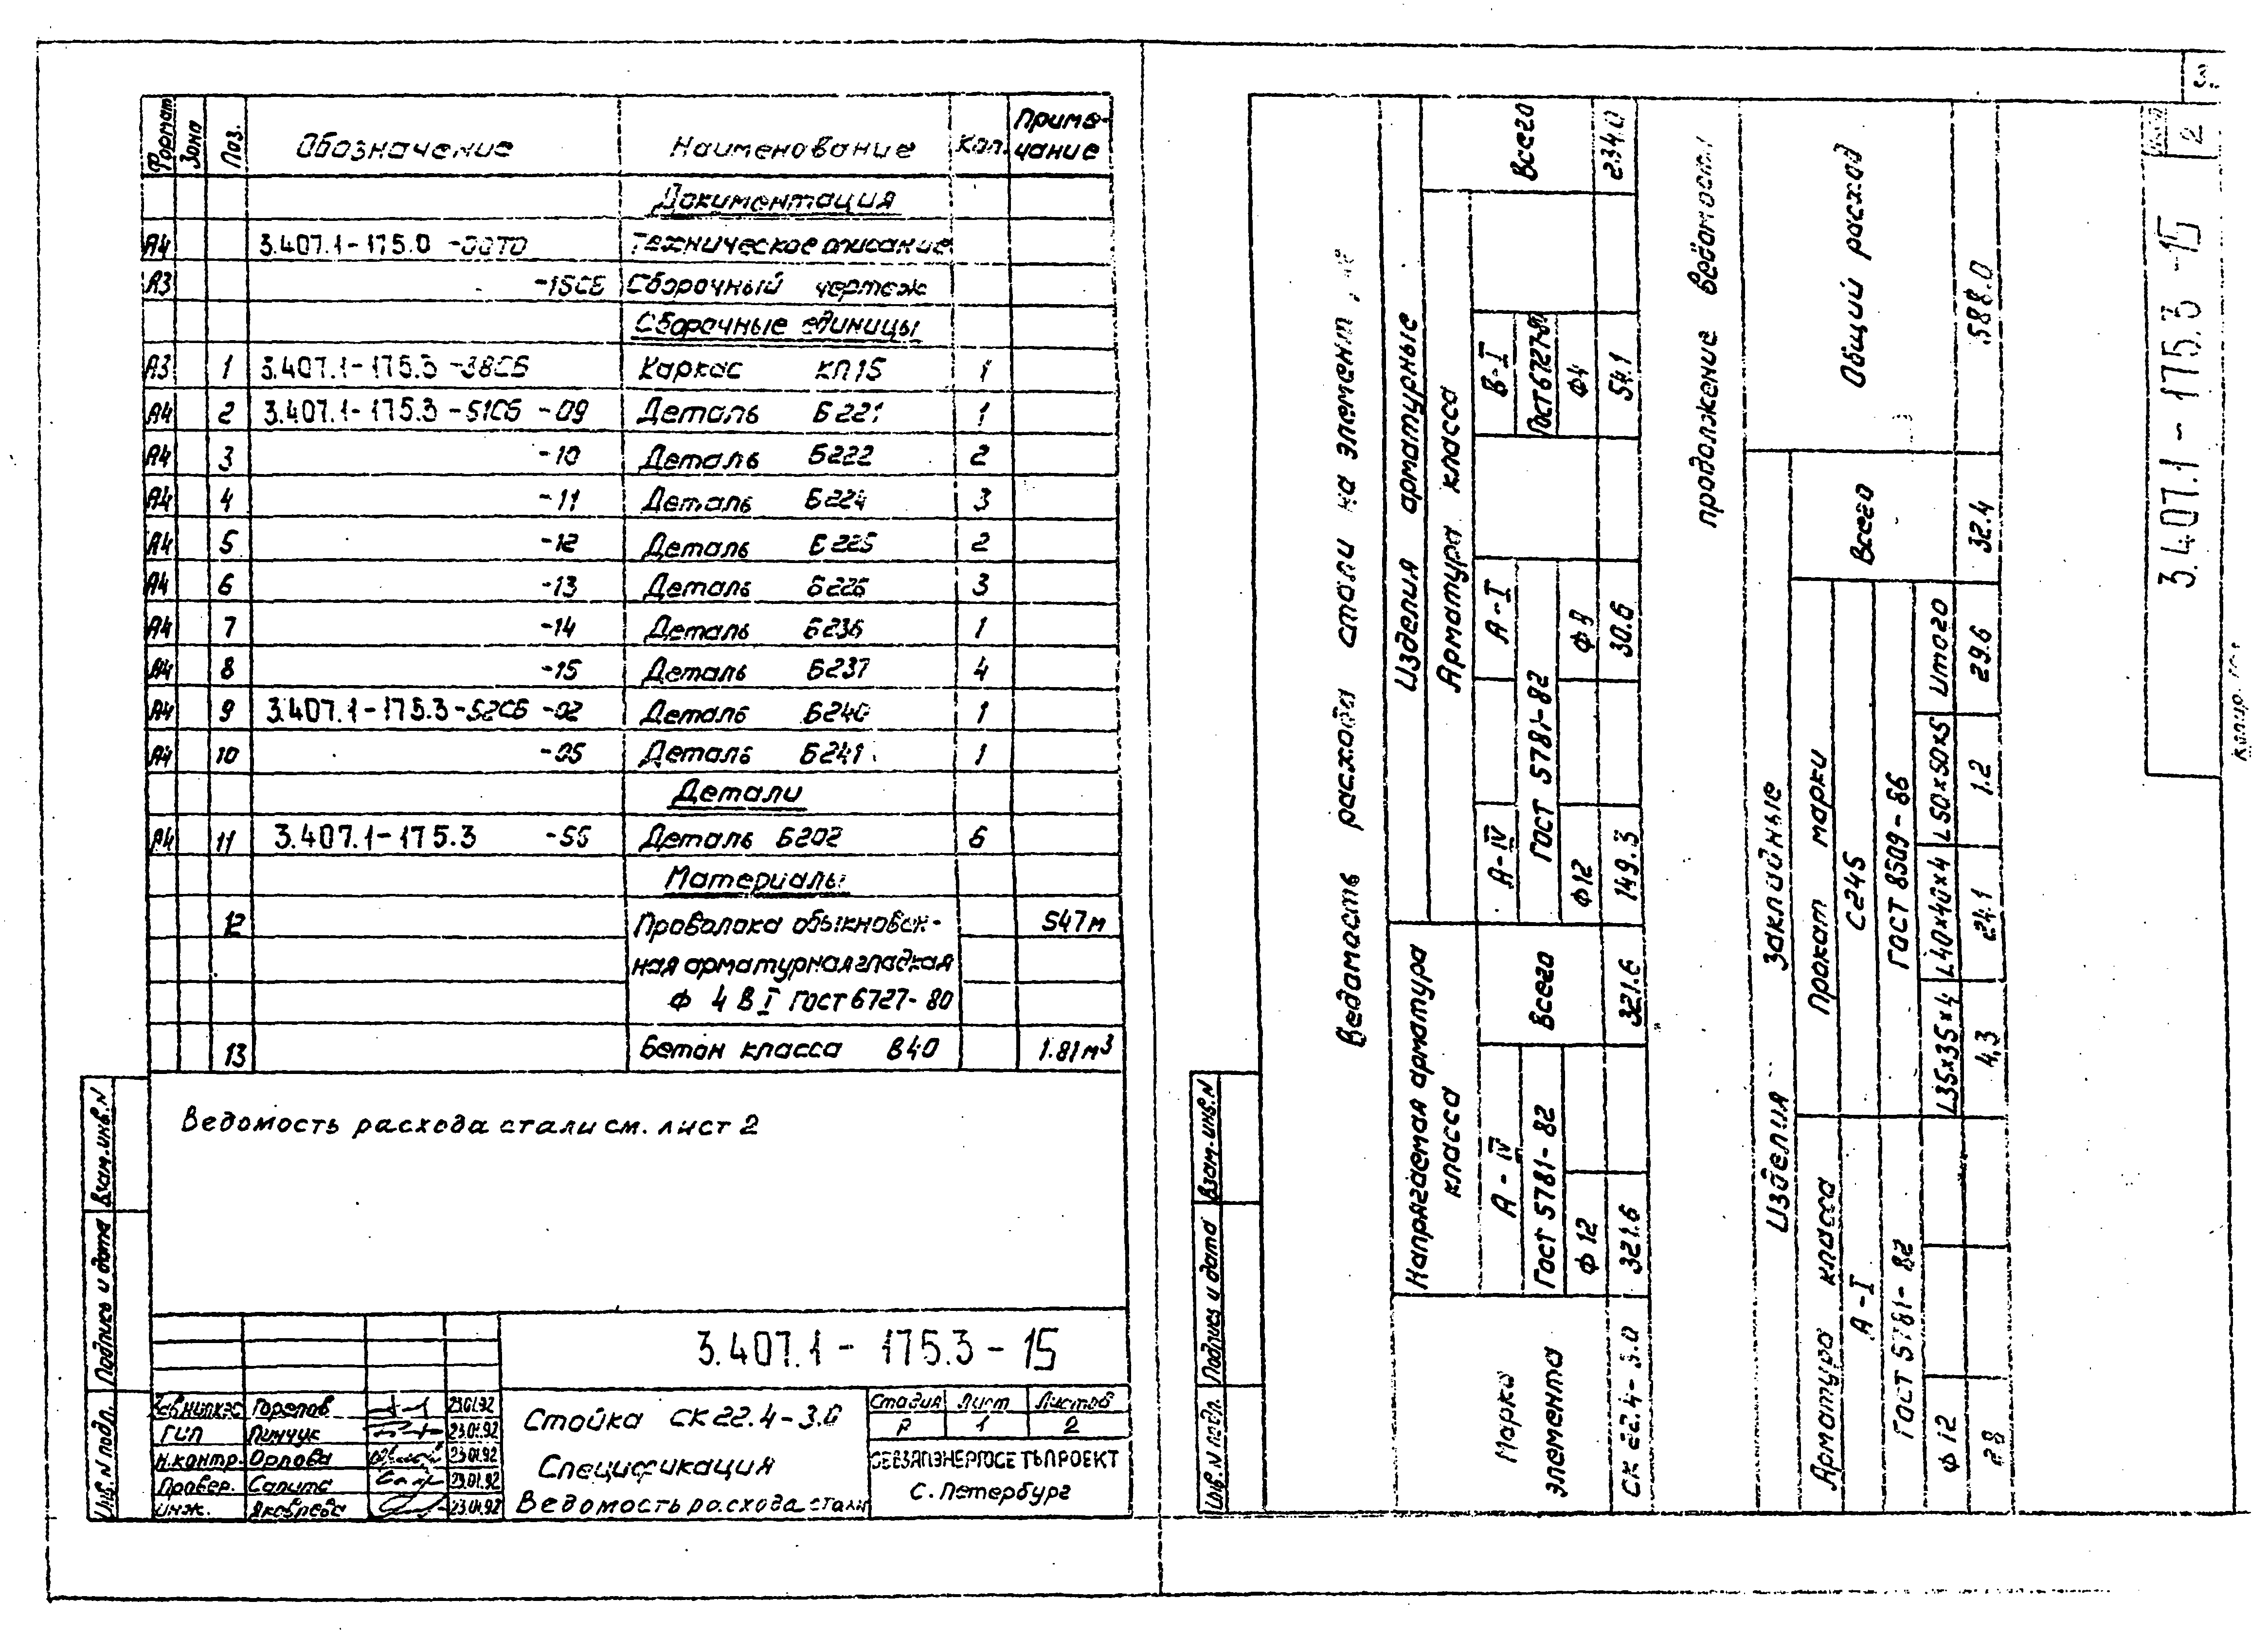 Формат Зона Поз. Обозначение Наименование Кол. Приме-
чание
Документация
А4 3.407.1-175.0 -00ТО Техническое описание
А3 -15СБ Сборочный чертеж
Сборочные единицы
А3 1 3.407.1-175.3 -38СБ Каркас КП15 1
А4 2 3.407.1-175.3-51СБ -09 Деталь Б221 1
А4 3 -10 Деталь Б222 2
А4 4 -11 Деталь Б224 3
А4 5 -12 Деталь Б225 2
А4 6 -13 Деталь Б226 3
А4 7 -14 Деталь Б236 1
А4 8 -15 Деталь Б237 4
А4 9 3.407.1-175.3-52СБ -02 Деталь Б240 1
А4 10 -05 Деталь Б241 1
Детали
А4 11 3.407.1-175.3 -55 Деталь Б202 6
Материалы
12 Проволока обыкновен- 547м
ная арматурная гладкая
Ф 4 В I ГОСТ 6727-80
13 Бетон класса В40 1.81м³
Ведомость расхода стали см. лист 2
3.407.1-175.3-15
Горелов 23.01.92
ГИП Пинчук 23.01.92
Н.контр. Орлова 23.01.92
Провер. 23.01.92
Инж. Яковлева 23.01.92
Стойка СК22.4-3.0
Спецификация
Ведомость расхода стали
Стадия Лист Листов
Р 1 2
СЕВЗАПЭНЕРГОСЕТЬПРОЕКТ
С. Петербург
Инв.N подл. Подпись и дата Взам.инв.N
Ведомость расхода стали на элемент,
Марка
элемента
Напрягаемая арматура
класса
Изделия арматурные
Арматура класса
А-IV Всего А-IV А-I В-I Всего
ГОСТ 5781-82 ГОСТ 5781-82
Ф12 Ф12 Ф4
СК 22.4-3.0 321.6 321.6 149.3 30.6 54.1 234.0
продолжение ведомости
Изделия закладные
Общий расход
Арматура класса Прокат марки Всего
А-I С245
ГОСТ 5781-82 ГОСТ 8509-86
Ф12 L35×35×4 L40×40×4 L50×50×5 Итого
2.8 4.3 24.1 1.2 29.6 32.4 588.0
3.407.1-175.3-15
Лист
2
3
Инв.N подл. Подпись и дата Взам.инв.N